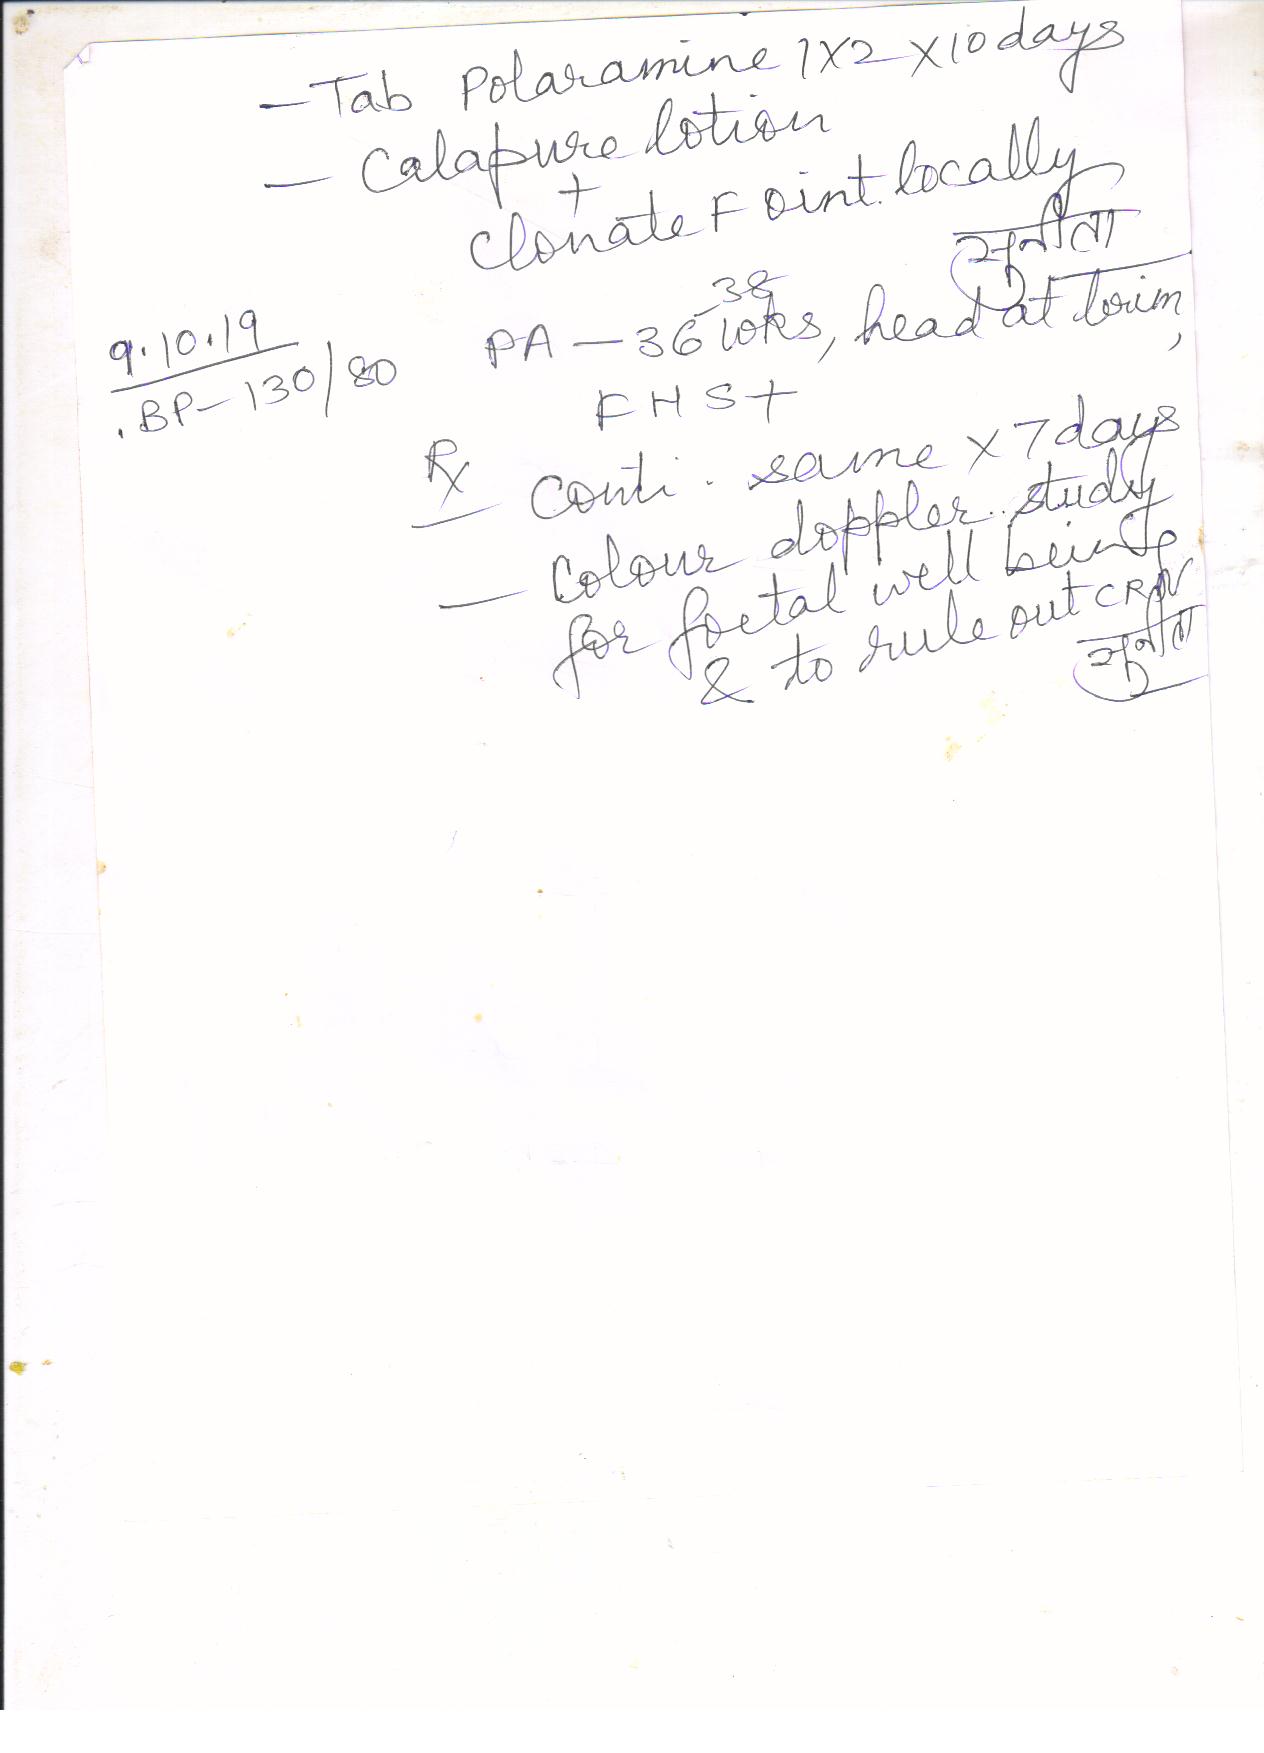 - Tab Polaramine 1X2 X10 days
- Calapure lotion
+
Clonate F oint. locally
सुनीता
9.10.19
BP - 130/80
38
PA - 36 wks, head at brim,
FHS+
Rx Conti. same X 7 days
- Colour doppler study
for foetal well being
& to rule out CRN
सुनीता